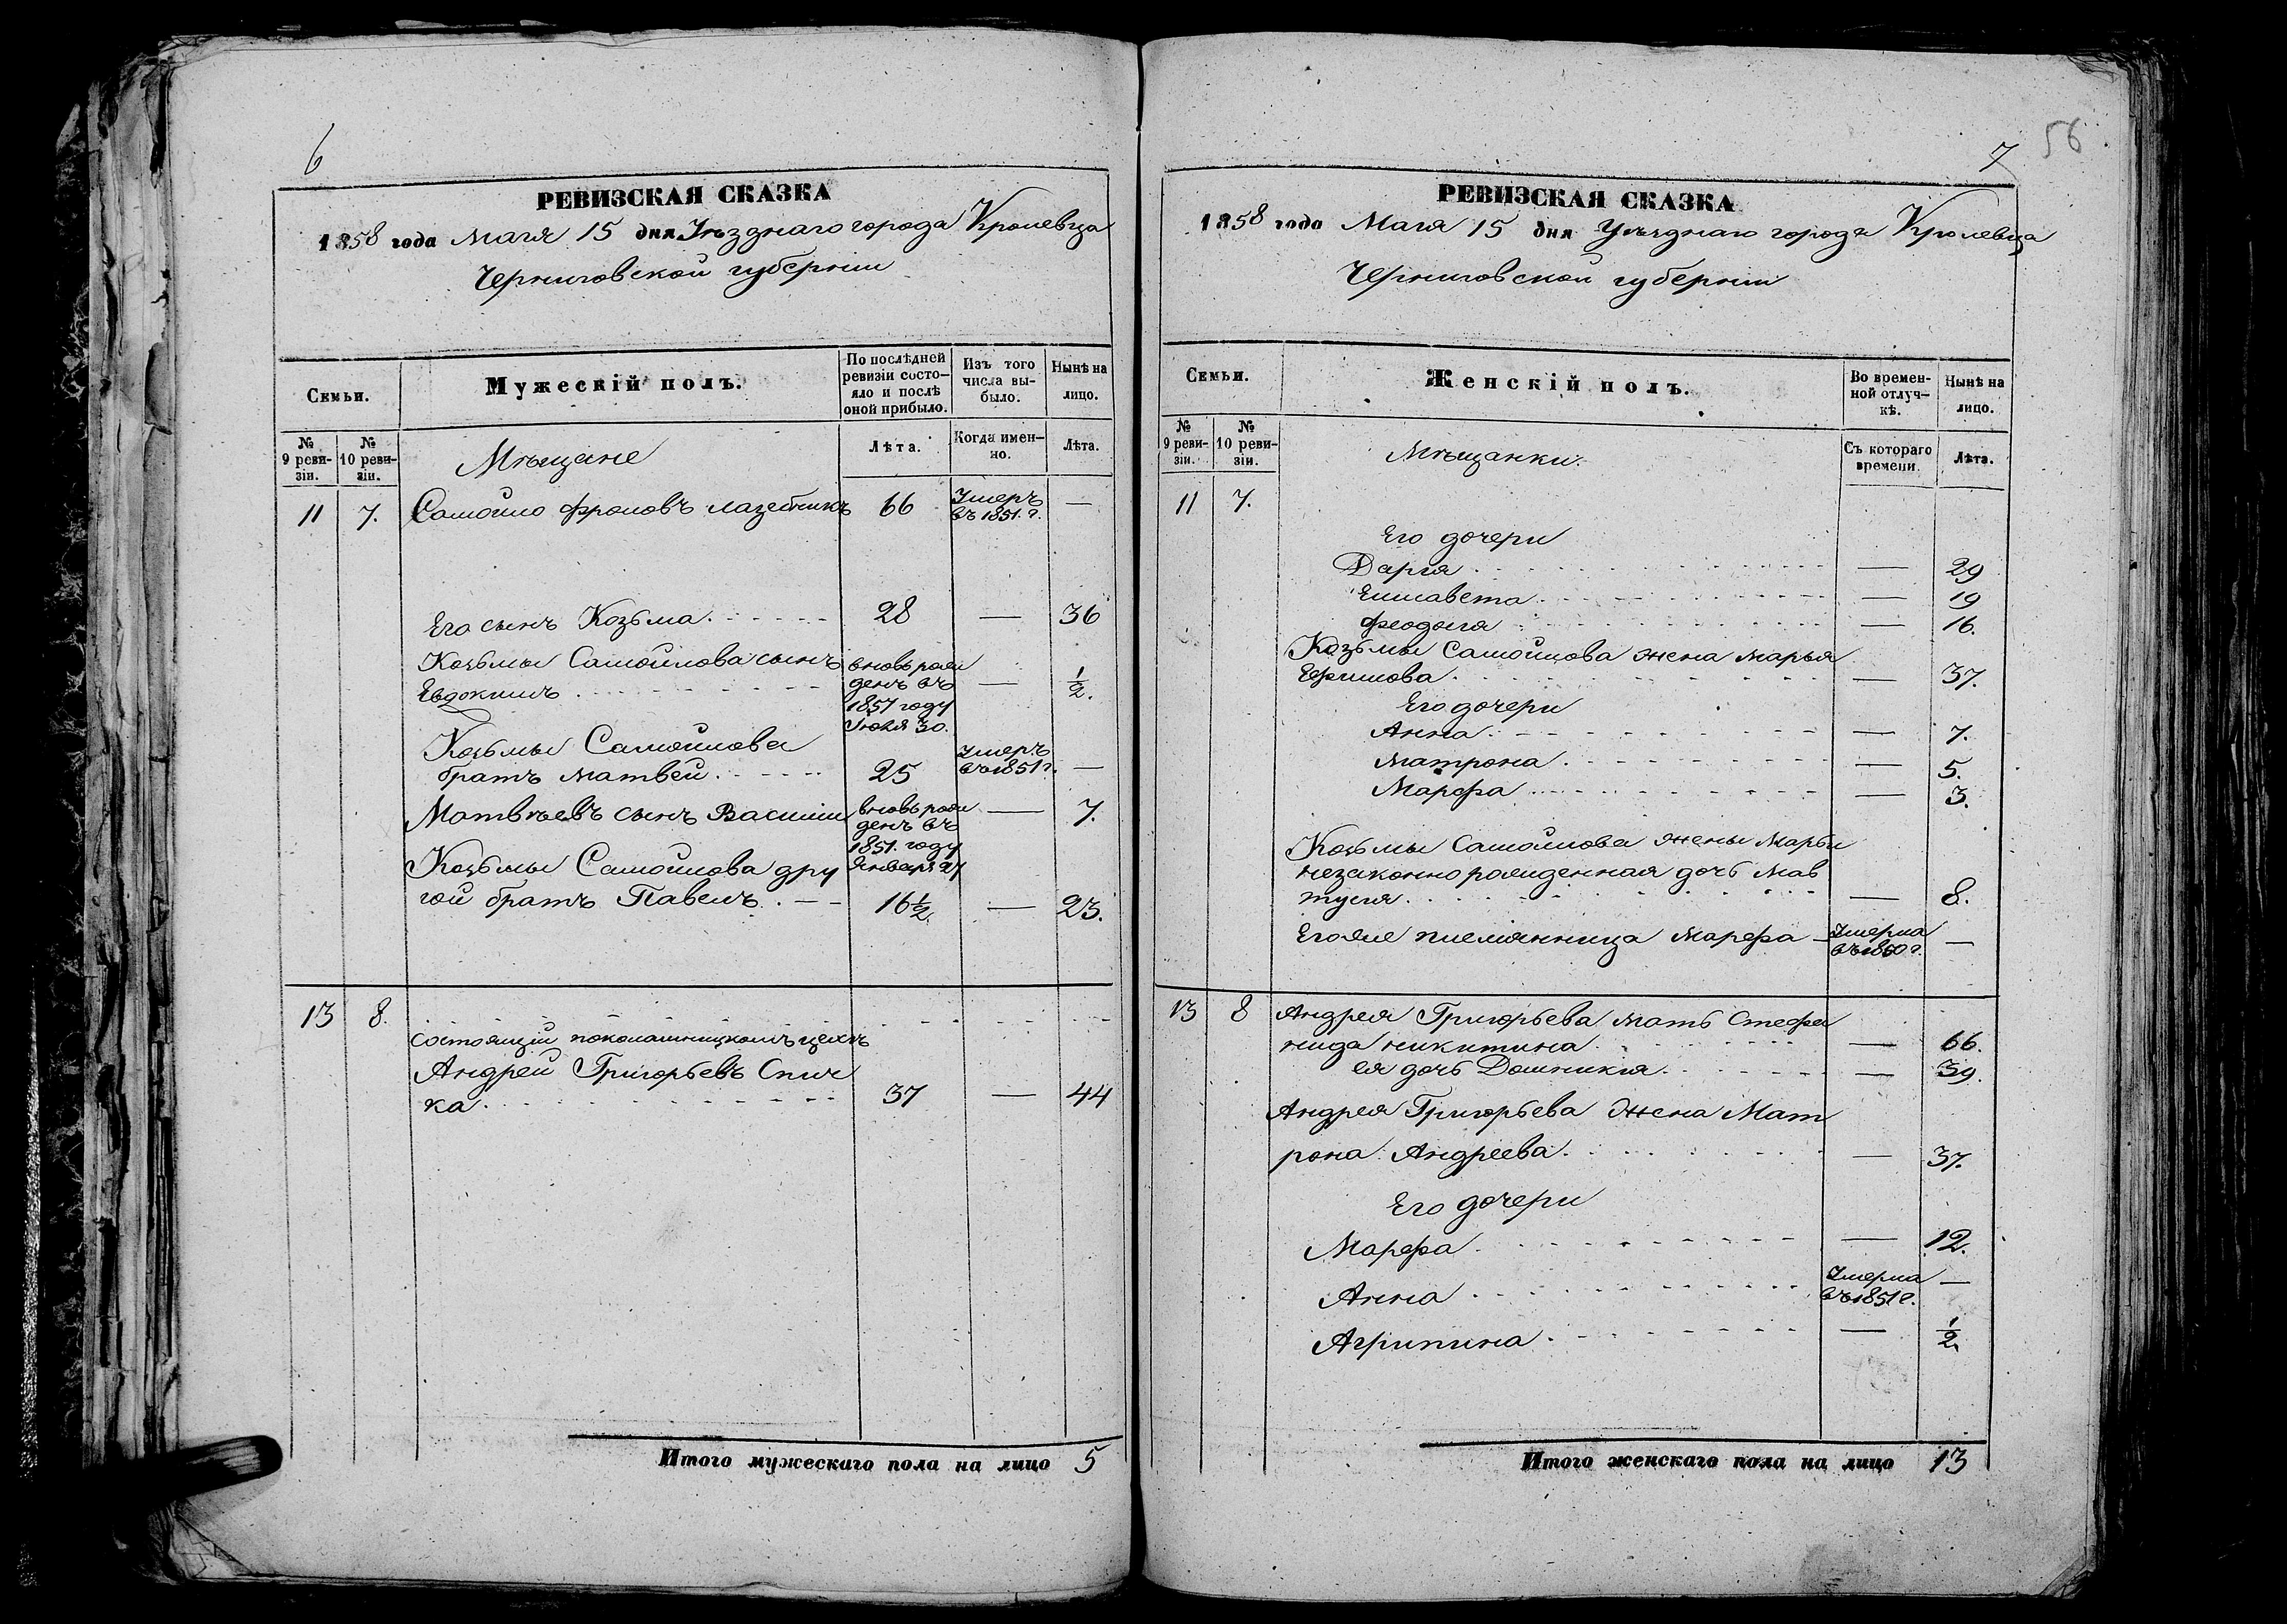 6
РЕВИЗСКАЯ СКАЗКА
1858 года Мaiя 15 дня Уѣзднаго города Кролевца
Черниговской губернiи
Семьи.
Мужескiй полъ.
По послѣдней ревизiи состо-
яло и послѣ
оной прибыло.
Изъ того
числа вы-
было.
Нынѣ на
лицо.
№
9 реви-
зiи.
№
10 реви-
зiи.
Мѣщане
Лѣта.
Когда имен-
но.
Лѣта.
11 7. Самойло Фроловъ Лазебникъ 66 Умеръ
въ 1851. г. —
Его сынъ Козьма 28 — 36
Козьмы Самойлова сынъ
Евдокимъ
вновь рож
денъ въ
1857 году
Iюля 30.
— 1/2.
Козьмы Самойлова
братъ Матвей 25 Умеръ
въ 1851 г. —
Матвѣевъ сынъ Василiй
вновь рож
денъ въ
1851. году
Января 27
— 7.
Козьмы Самойлова дру
гой братъ Павелъ 16 1/2. — 23.
13 8.
состоящiй по коломницкомъ цехѣ
Андрей Григорьевъ Спич
ка 37 — 44
Итого мужескаго пола на лицо 5
7
56
РЕВИЗСКАЯ СКАЗКА
1858 года Маiя 15 дня Уѣзднаго города Кролевца
Черниговской губернiи
Семьи.
Женскiй полъ.
Во времен-
ной отлуч-
кѣ.
Нынѣ на
лицо.
№
9 реви-
зiи.
№
10 реви-
зiи.
Мѣщанки.
Съ котораго
времени.
Лѣта.
11 7.
Его дочери
Дарiя — 29
Елисавета — 19
Феодосiя — 16.
Козьмы Самойлова жена Марья
Ефимова — 37.
Его дочери
Анна — 7.
Матрона — 5.
Марфа — 3.
Козьмы Самойлова жены Марьи
незаконно рожденная дочь Мав
тусiя — 8.
Его же племянница Марфа — Умерла
въ 1850 г. —
13 8 Андрея Григорьева мать Стефа
нида Никитина — 66.
ея дочь Домникiя — 39.
Андрея Григорьева жена Мат
рона Андреева — 37.
Его дочери
Марфа — 12.
Анна Умерла
въ 1851 г. —
Агрипина — 1/2
Итого женскаго пола на лицо 13